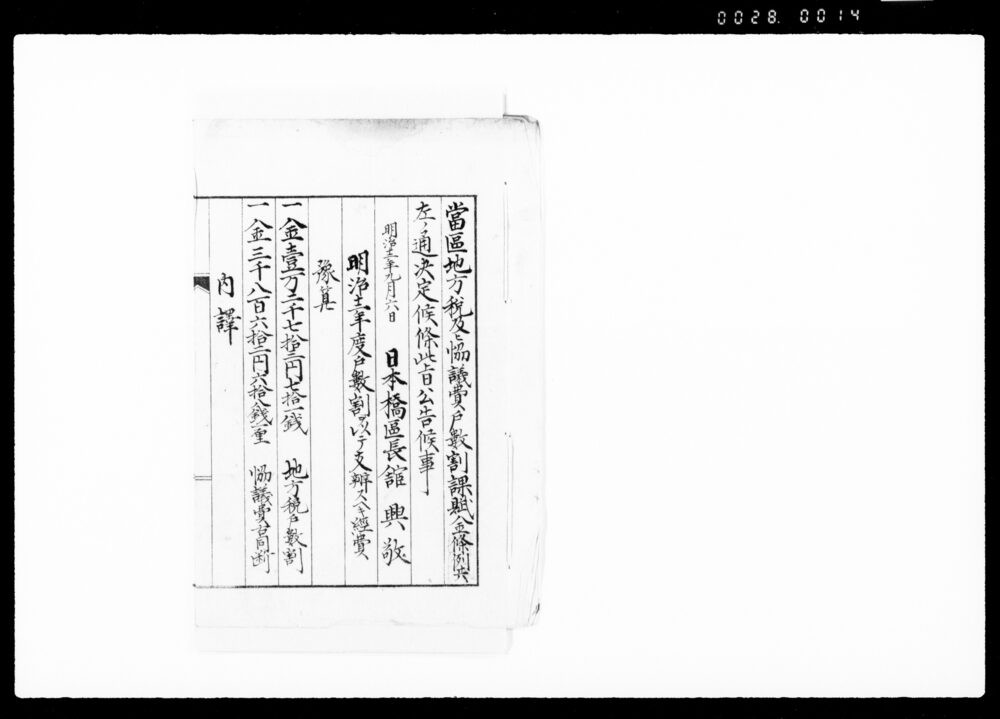 0028. 0014
當區地方税及ヒ協議費戸數割課賦金條例共
左ノ通决定候條此旨公告候事
明治十二年九月六日 日本橋區長舘 興敬
明治十二年度戸數割ヲ以テ支辨スヘキ經費
豫算
一金壹万二千七拾二円七拾一銭 地方税戸數割
一金三千八百六拾二円六拾八銭一厘 協議費右同断
内譯